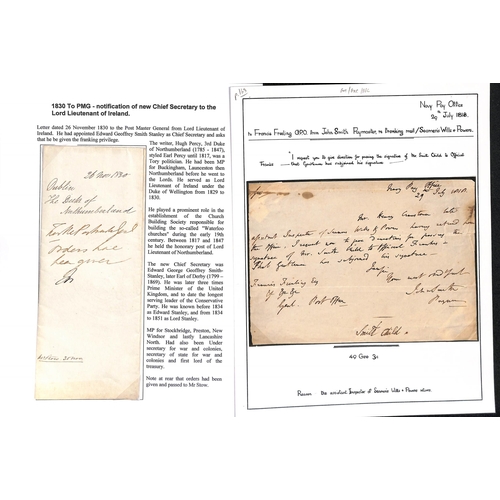 1830 To PMG - notification of new Chief Secretary to the
Lord Lieutenant of Ireland.
Letter dated 26 November 1830 to the Post Master General from Lord Lieutenant of
Ireland. He had appointed Edward Geoffrey Smith Stanley as Chief Secretary and asks
that he be given the franking privilege.
The writer, Hugh Percy, 3rd Duke
of Northumberland (1785 - 1847),
styled Earl Percy until 1817, was a
Tory politician. He had been MP
for Buckingham, Launceston then
Northumberland before he went to
the Lords. He served as Lord
Lieutenant of Ireland under the
Duke of Wellington from 1829 to
1830.
He played a prominent role in the
establishment of the Church
Building Society responsible for
building the so-called "Waterloo
churches" during the early 19th
century. Between 1817 and 1847
he held the honorary post of Lord
Lieutenant of Northumberland.
The new Chief Secretary was
Edward George Geoffrey Smith-
Stanley, later Earl of Derby (1799 –
1869). He was three times Prime
Minister of the United
Kingdom, and to date the longest
serving leader of the Conservative
Party. He was known before 1834
as Edward Stanley, and from 1834
to 1851 as Lord Stanley.
MP for Stockbridge, Preston, New
Windsor and lastly Lancashire
North. Had also been Under
secretary for war and colonies,
secretary of state for war and
colonies and first lord of the
treasury.
Note at rear that orders had been
given and passed to Mr.Stow.
26 Nov 1830
Dublin
The Duke of
Northumberland
Orders have
been given
Navy Pay Office
29th July 1818.
to Francis Freeling GPO from John Smith Paymaster, re franking mail/Seamen's Wills + Powers.
"I request you to give directions for passing the signature of Mr Smith Child to Official
Franks - that Gentleman has resigned his signature -
Navy Pay Office
29 July 1818
assistant Inspector of Seamen's Wills & Powers having
the Office. I request you to give Directions for passing the
signature of Mr Smith Child to Official Franks -
that Gentleman has resigned his signature -
Francis Freeling Esq
Genl Post Office
Smith Child
42 Geo 3:
Reason the assistant Inspector of Seamen's Wills + Powers alone.